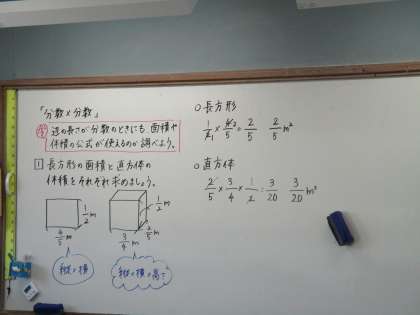 「分数×分数」
辺の長さが分数のときにも、面積や
体積の公式が使えるのか調べよう。
1 長方形の面積と直方体の
体積をそれぞれ求めましょう。
1/2 m
4/5 m
1/2 m
2/5 m
3/4 m
縦×横
縦×横×高さ
○長方形
1/2 × 4/5 = 2/5 2/5 m²
○直方体
2/5 × 3/4 × 1/2 = 3/20 3/20 m³